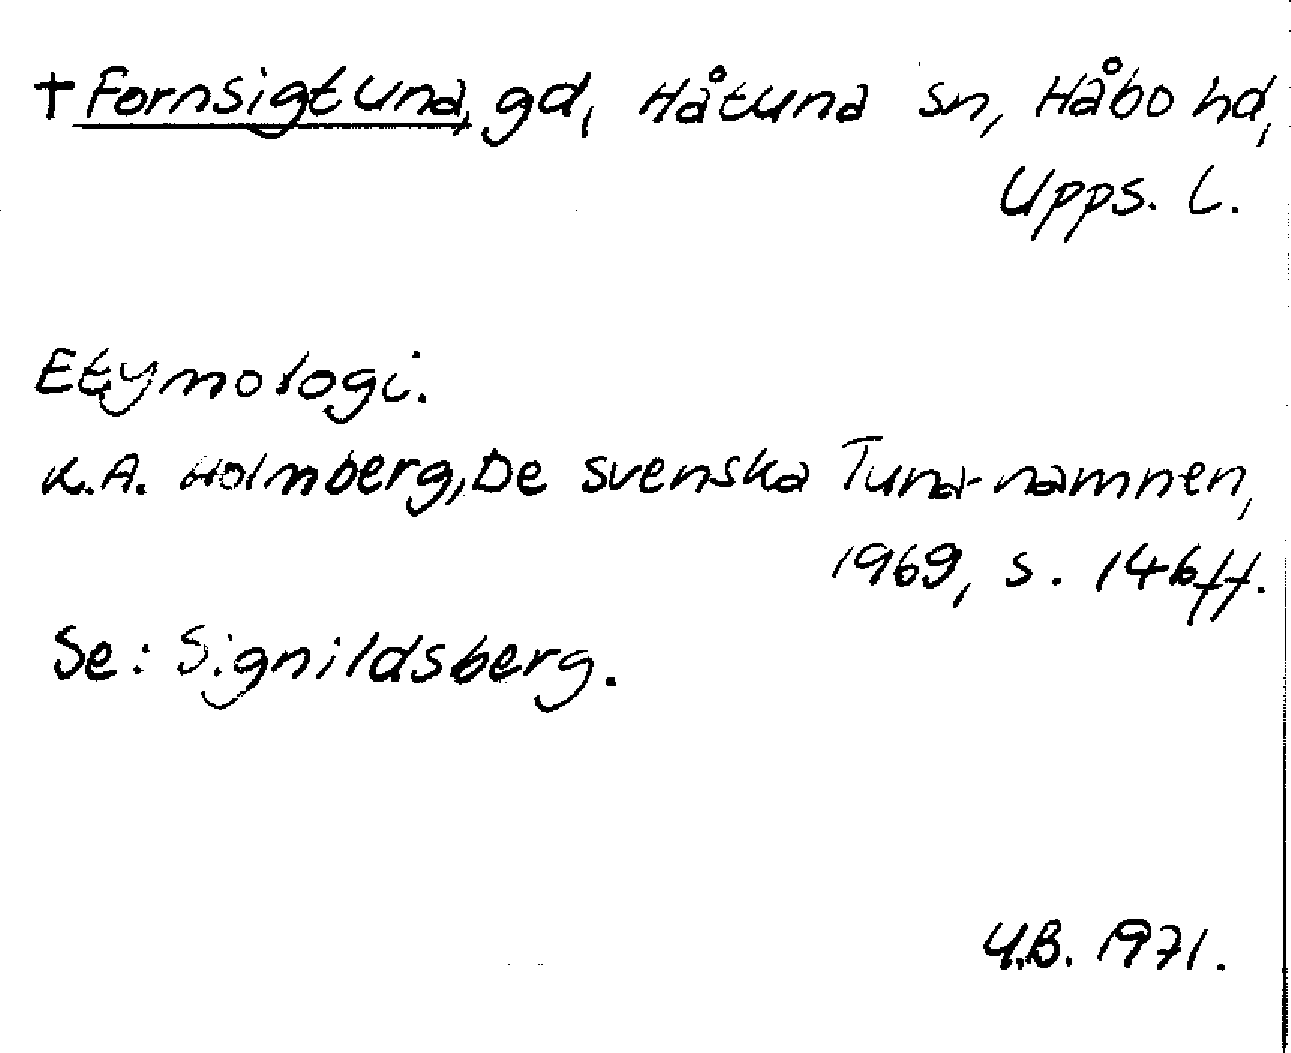 † Fornsigtuna, gd, Håtuna sn, Håbo hd,
Upps. l.
Etymologi.
K.A. Holmberg, De svenska Tuna-namnen,
1969, s. 146ff.
Se: Signildsberg.
Y.B. 1971.